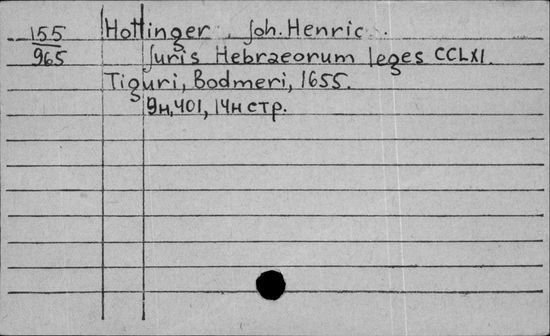 155
965
Hottinger, Joh. Henric.
Juris Hebraeorum leges CCLXI.
Tiguri, Bodmeri, 1655.
9н, 401, 14н стр.